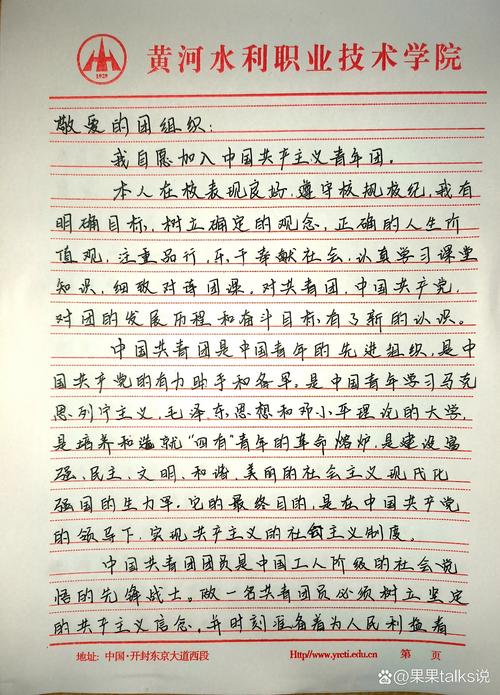 1929
黄河水利职业技术学院
敬爱的团组织:
我自愿加入中国共产主义青年团。
本人在校表现良好,遵守校规校纪,我有
明确目标,树立确定的观念,正确的人生价
值观,注重品行,乐于奉献社会,认真学习课堂
知识,细致对待团课,对共青团,中国共产党,
对团的发展历程和奋斗目标有了新的认识。
中国共青团是中国青年的先进组织,是中
国共产党的有力助手和备军。是中国青年学习马克
思列宁主义,毛泽东思想和邓小平理论的大学,
是培养和造就“四有”青年的革命熔炉,是建设富
强、民主、文明、和谐、美丽的社会主义现代化
强国的生力军。它的最终目的,是在中国共产党
的领导下,实现共产主义的社会主义制度。
中国共青团团员是中国工人阶级的社会觉
悟的先锋战士。做一名共青团员必须树立坚定
的共产主义信念,并时刻准备着为人民利益着
地址: 中国·开封东京大道西段 Http//www.yrcti.edu.cn 第 页
@果果talks说